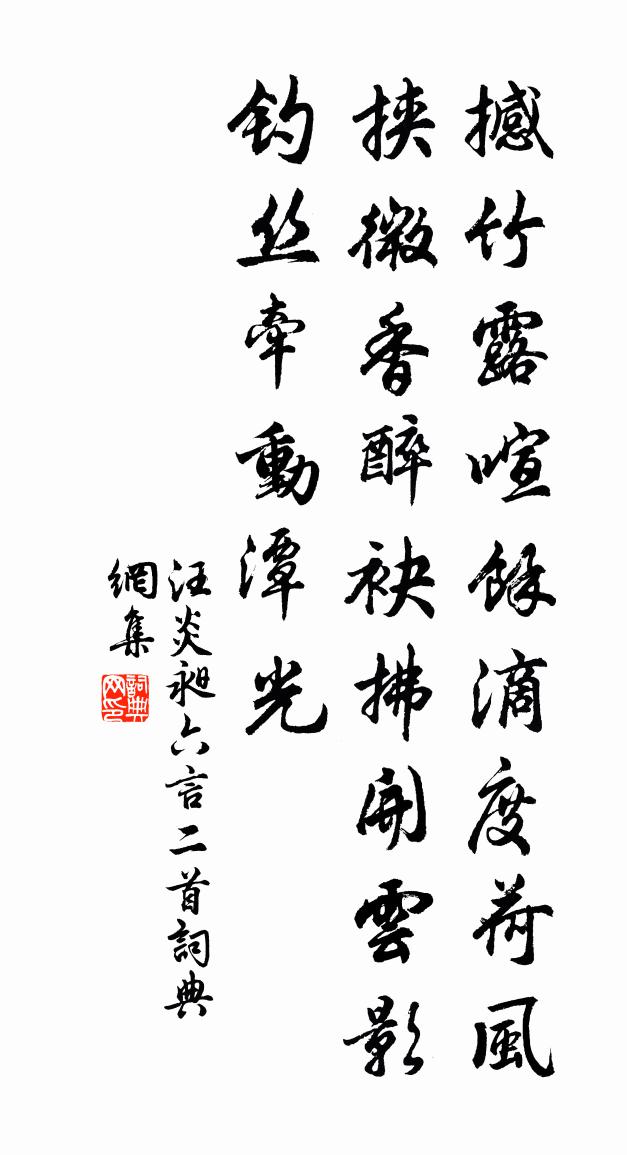 撼竹露喧餘滴度荷風
挾微香醉袂拂開雲影
釣丝牽動潭光
汪炎昶六言二首詞典
網集
詞典網印